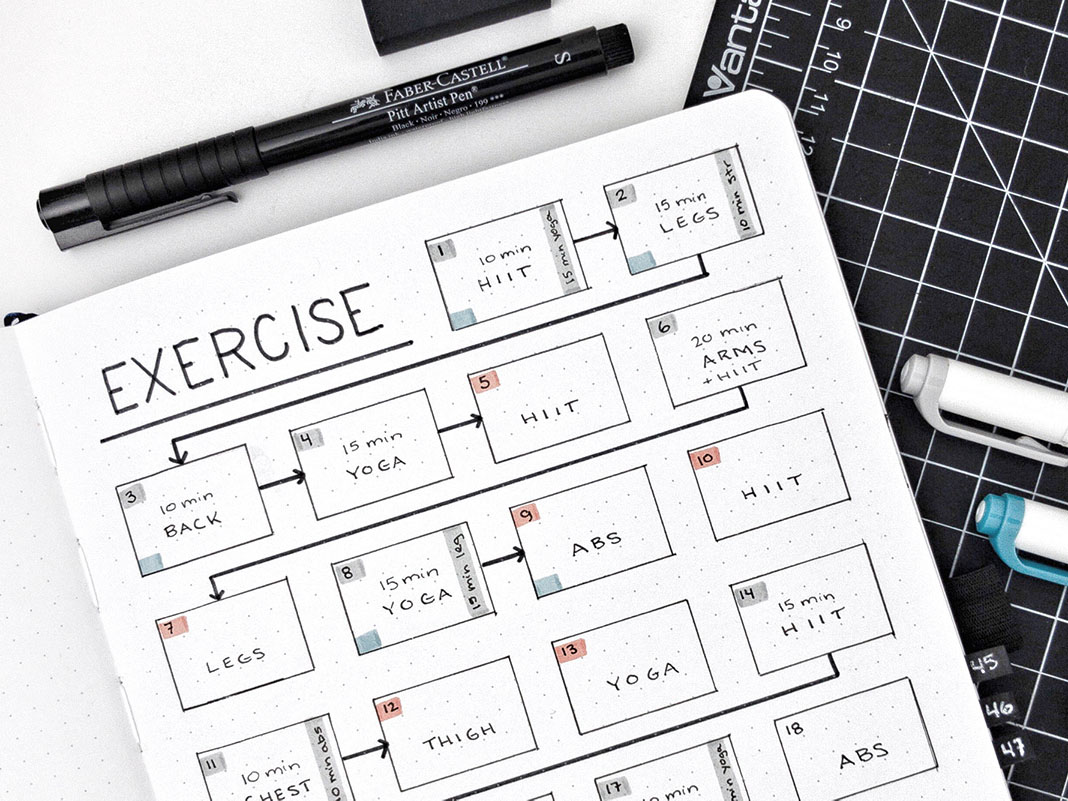 FABER-CASTELL
Pitt Artist Pen®
Black · Noir · Negro · 199 ***
S
Vanta
9
10
11
12
EXERCISE
1
10 min
HIIT
15 min yoga
2
15 min
LEGS
10 min str
3
10 min
BACK
4
15 min
YOGA
5
HIIT
6
20 min
ARMS
+ HIIT
7
LEGS
8
15 min
YOGA
min leg
9
ABS
10
HIIT
11
10 min
CHEST
10 min abs
12
THIGH
13
YOGA
14
15 min
HIIT
17
10 min
min yoga
18
ABS
45
46
47